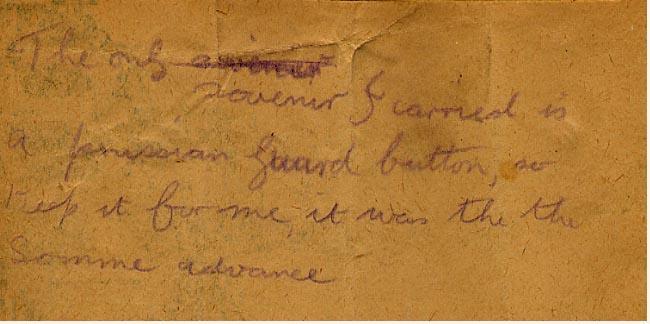 The only
sovenir I carried is
a prussian Guard button, so
keep it for me, it was the the
Somme advance